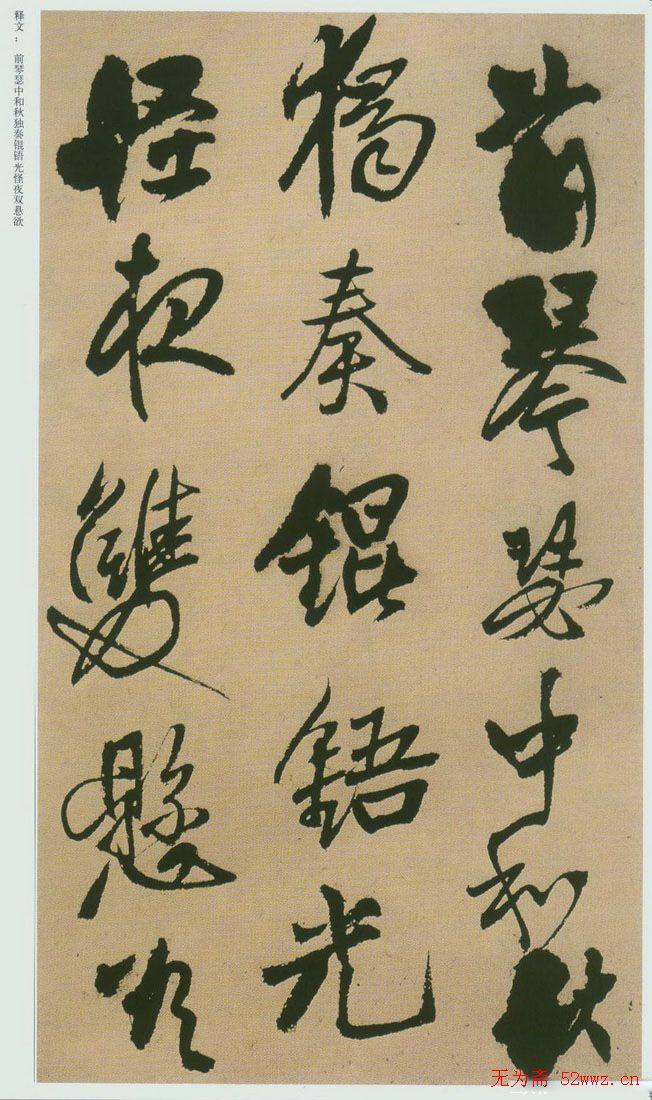 前琴瑟中和秋
獨奏錕鋙光
怪夜雙懸欲
释文： 前琴瑟中和秋独奏锟铻光怪夜双悬欲
无为斋 52wwz.cn